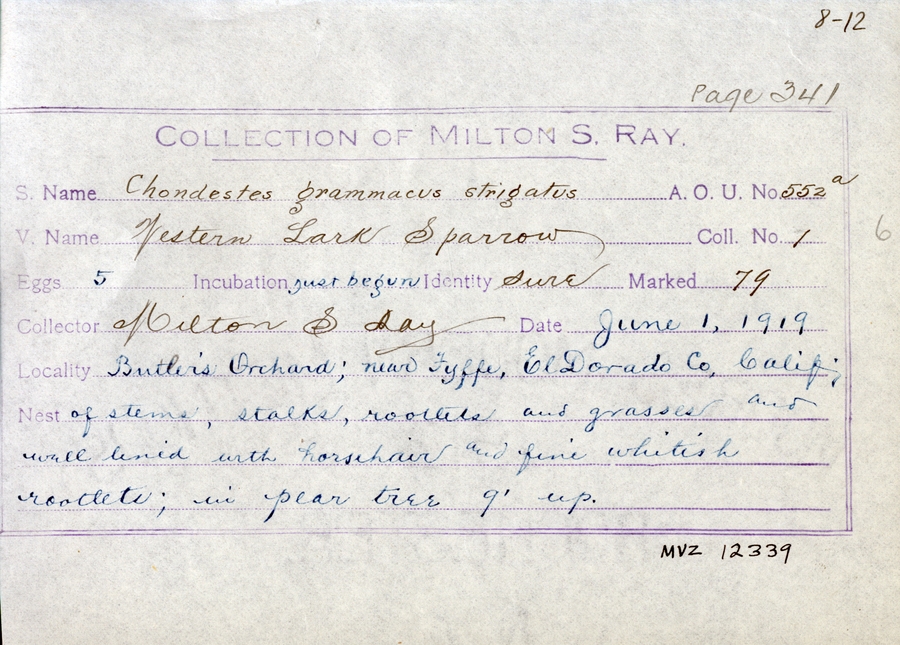 8-12
Page 341
COLLECTION OF MILTON S. RAY.
S. Name Chondestes grammacus strigatus A. O. U. No. 552a
V. Name Western Lark Sparrow Coll. No. 1
6
Eggs 5 Incubation just begun Identity sure Marked 79
Collector Milton S Ray Date June 1, 1919
Locality Butler's Orchard; near Fyffe, El Dorado Co, Calif;
Nest of stems, stalks, rootlets and grasses and
well lined with horsehair and fine whitish
rootlets; in pear tree 9' up.
MVZ 12339